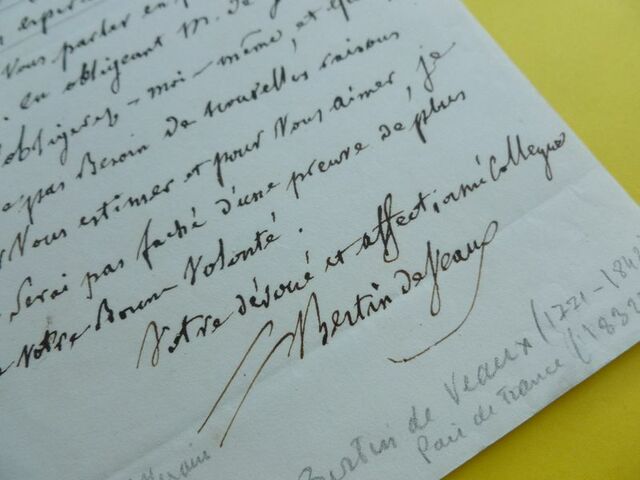 vous parler en
en obligeant M. de
obligerez-moi-même et que
pas Besoin de nouvelles raisons
Vous estimer et pour Vous aimer, je
serai pas faché d'une preuve de plus
votre Bonne Volonté.
Votre dévoué et affectionné Collegue
Bertin deVeaux
Bertin de Veaux (1771-184
Pair de France (1832